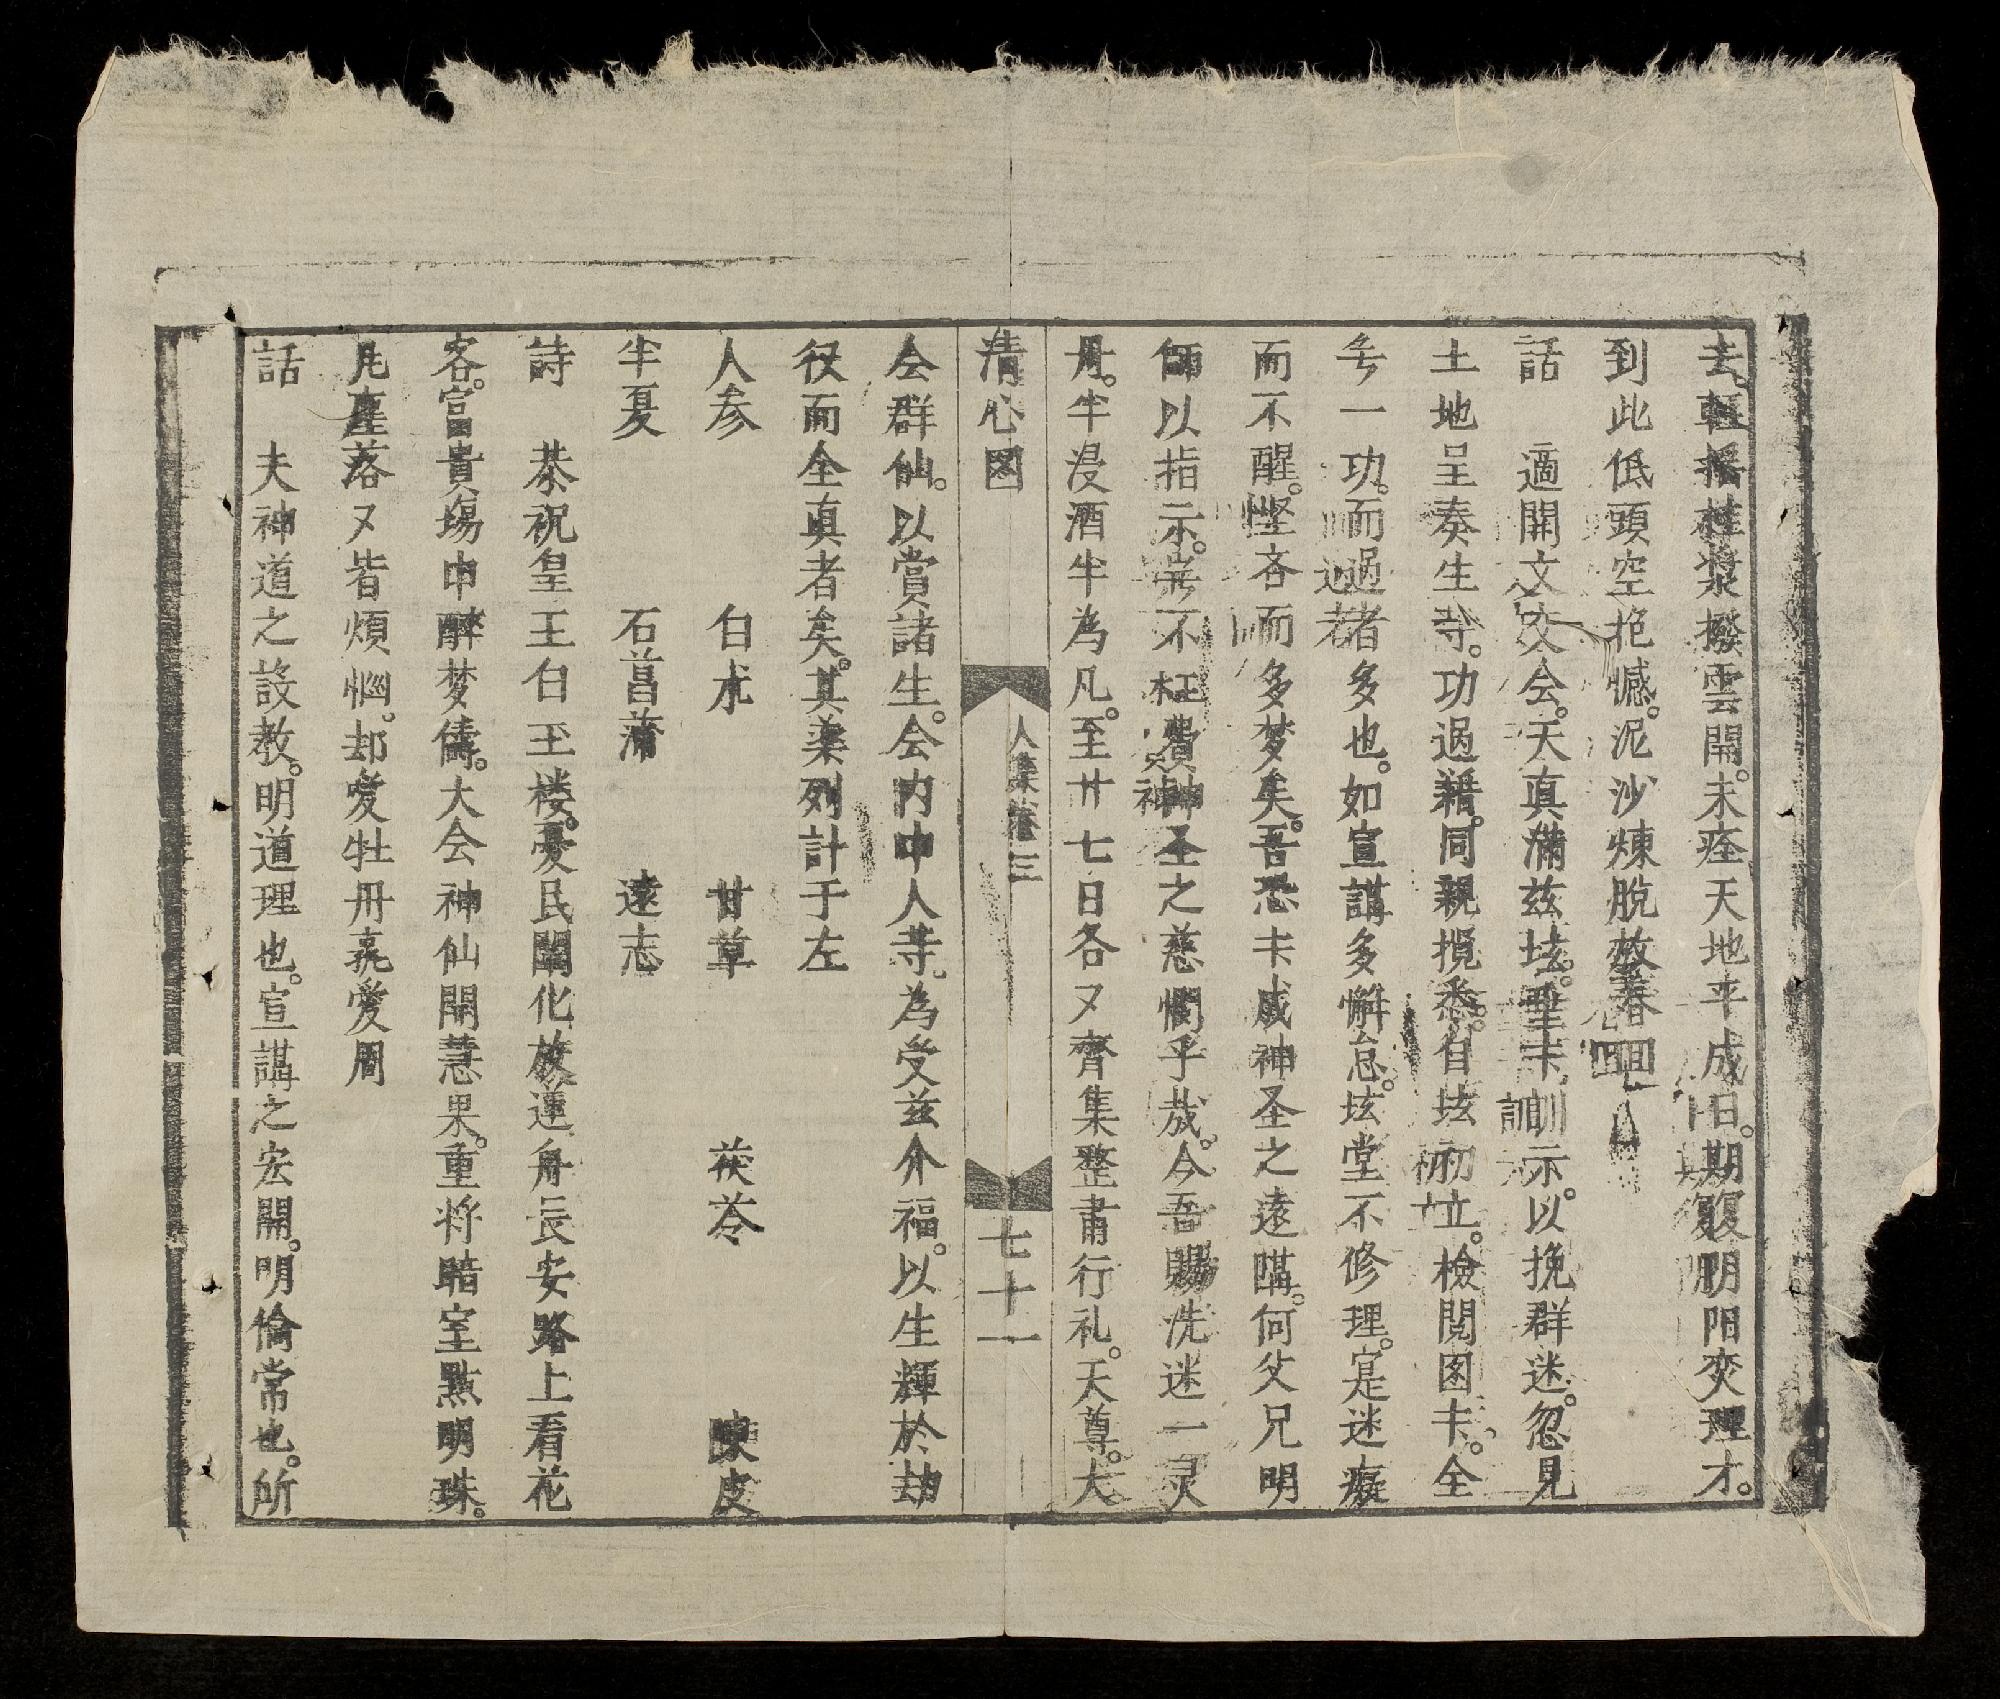 去。輕搖桂槳撥雲開。未痊天地平成日。期覆朋陽爕理才。
到此低頭空抱憾。泥沙煉脫救春回
話　適開文文会。天真滿兹坛。聖卡訓示。以挽群迷。忽見
土地呈奏生等。功过籍。同親攬悉。自坛初立。檢閱图卡。全
無一功。而過者多也。如宣講多懈怠。坛堂不修理。寔迷癡
而不醒。慳吝而多梦矣。吾恐卡威神圣之遠隣。何父兄明
師以指示。豈不枉費神圣之慈憫乎哉。今吾賜洗迷一灵
丹。半浸酒半為凡。至廿七日各又齊集整肅行礼。天尊。大
清心图　人集卷三　七十一
会群仙。以賞諸生。会内中人等。為受兹介福。以生輝於劫
役而全真者矣。其藥列計于左
人参　白术　甘草　茯苓　陳皮
半夏　石菖蒲　遠志
詩　恭祝皇王白玉楼。憂民闡化放蓮舟。長安路上看花
客。富貴場中醉梦儔。大会神仙開慧果。重将暗室點明珠。
凡塵落又皆煩惱。却愛牡丹爇愛周
話　夫神道之設教。明道理也。宣講之宏開。明倫常也。所